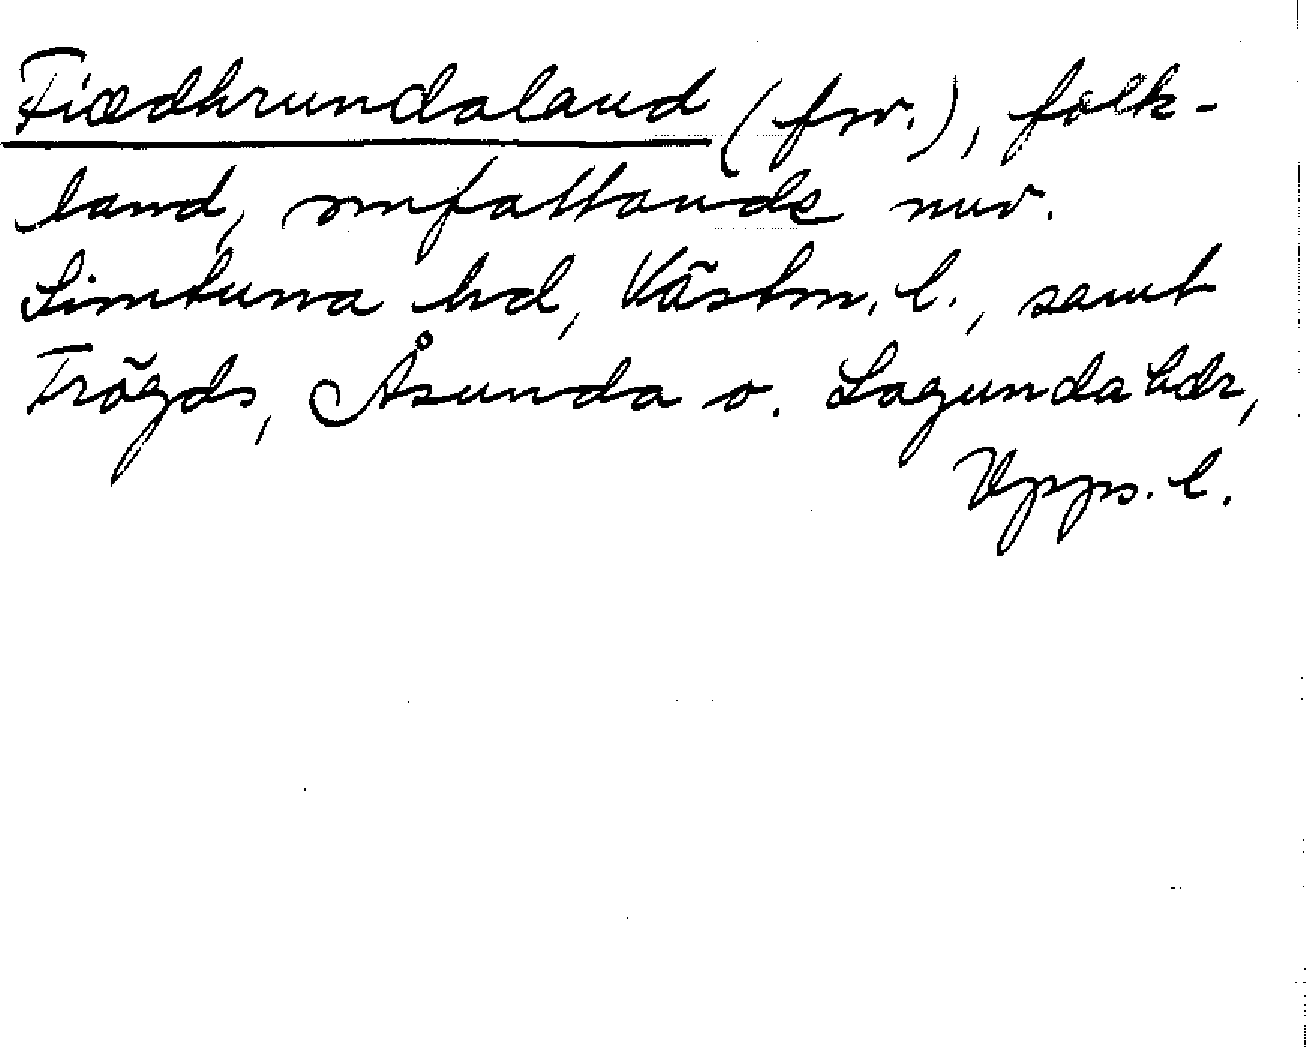 Fiædhrundaland (fsv.), folk-
land, omfattande nuv.
Simtuna hd, Västm. l., samt
Trögds, Åsunda o. Lagunda hdr,
Upps. l.